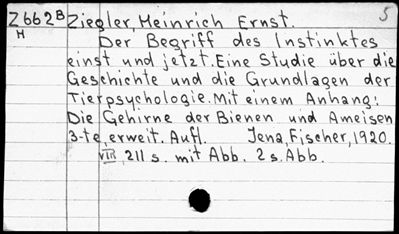 Z662B Ziegler, Heinrich Ernst. 5
H Der Begriff des Instinktes
einst und jetzt. Eine Studie über die
Geschichte und die Grundlagen der
Tierpsychologie. Mit einem Anhang:
Die Gehirne der Bienen und Ameisen
3-te, erweit. Aufl. Jena, Fischer, 1920.
VIII, 211 s. mit Abb. 2 s. Abb.